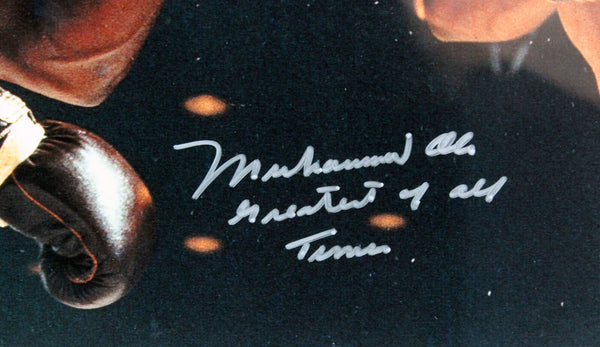 Muhammad Ali
Greatest of all
Times